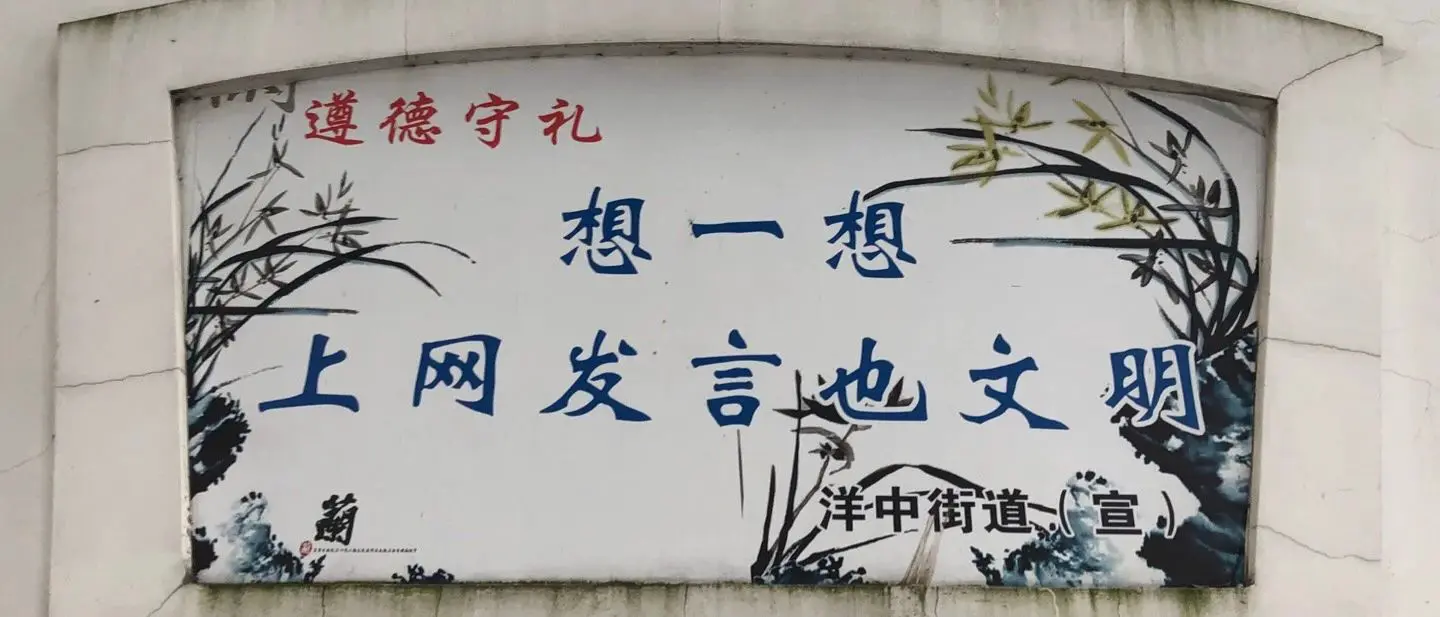 遵德守礼
想一想
上网发言也文明
蘭
洋中街道（宣）